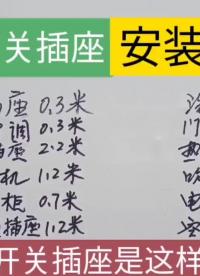 关插座 安装
座 0.3米
调 0.3米
座 2.2米
机 1.2米
柜 0.7米
插座 1.2米
热
电
开关插座是这样